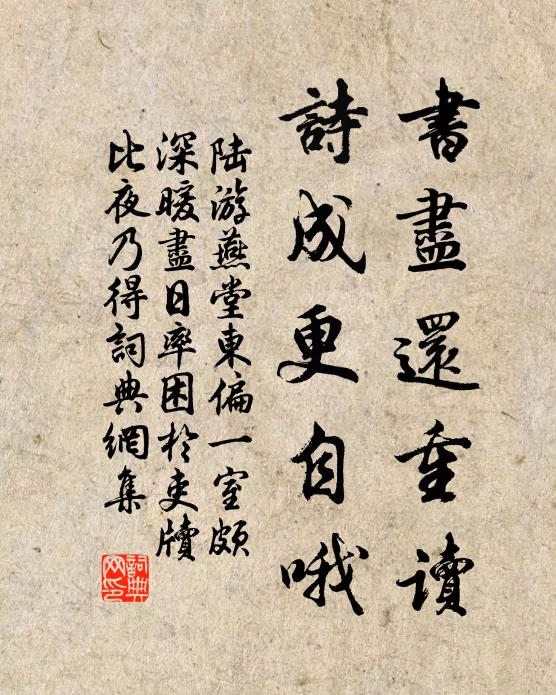 書盡還重讀
詩成更自哦
陆游燕堂東偏一室頗
深暖盡日率困於吏牘
比夜乃得詞典網集
詞典
网印